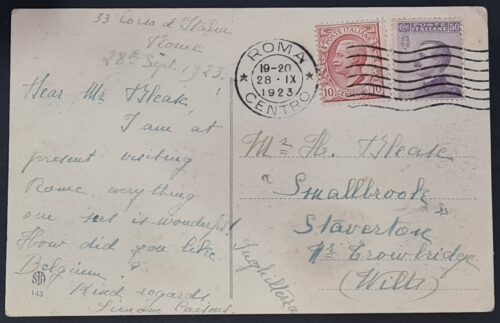 33 Corso d'Italia
Rome
28th Sept. 1923.
Dear Mr Blease,
I am at
present visiting
Rome, everything
one sees is wonderful
How did you like
Belgium?
Kind regards
Simone
STA
143
ROMA
19-20
28·IX
1923
CENTRO
POSTE ITALIANE
10 CENTESIMI 10
POSTE ITALIANE
50
Mr H. Blease
Smallbrook
Staverton
Nr Trowbridge
(Wilts)
Inghilterra